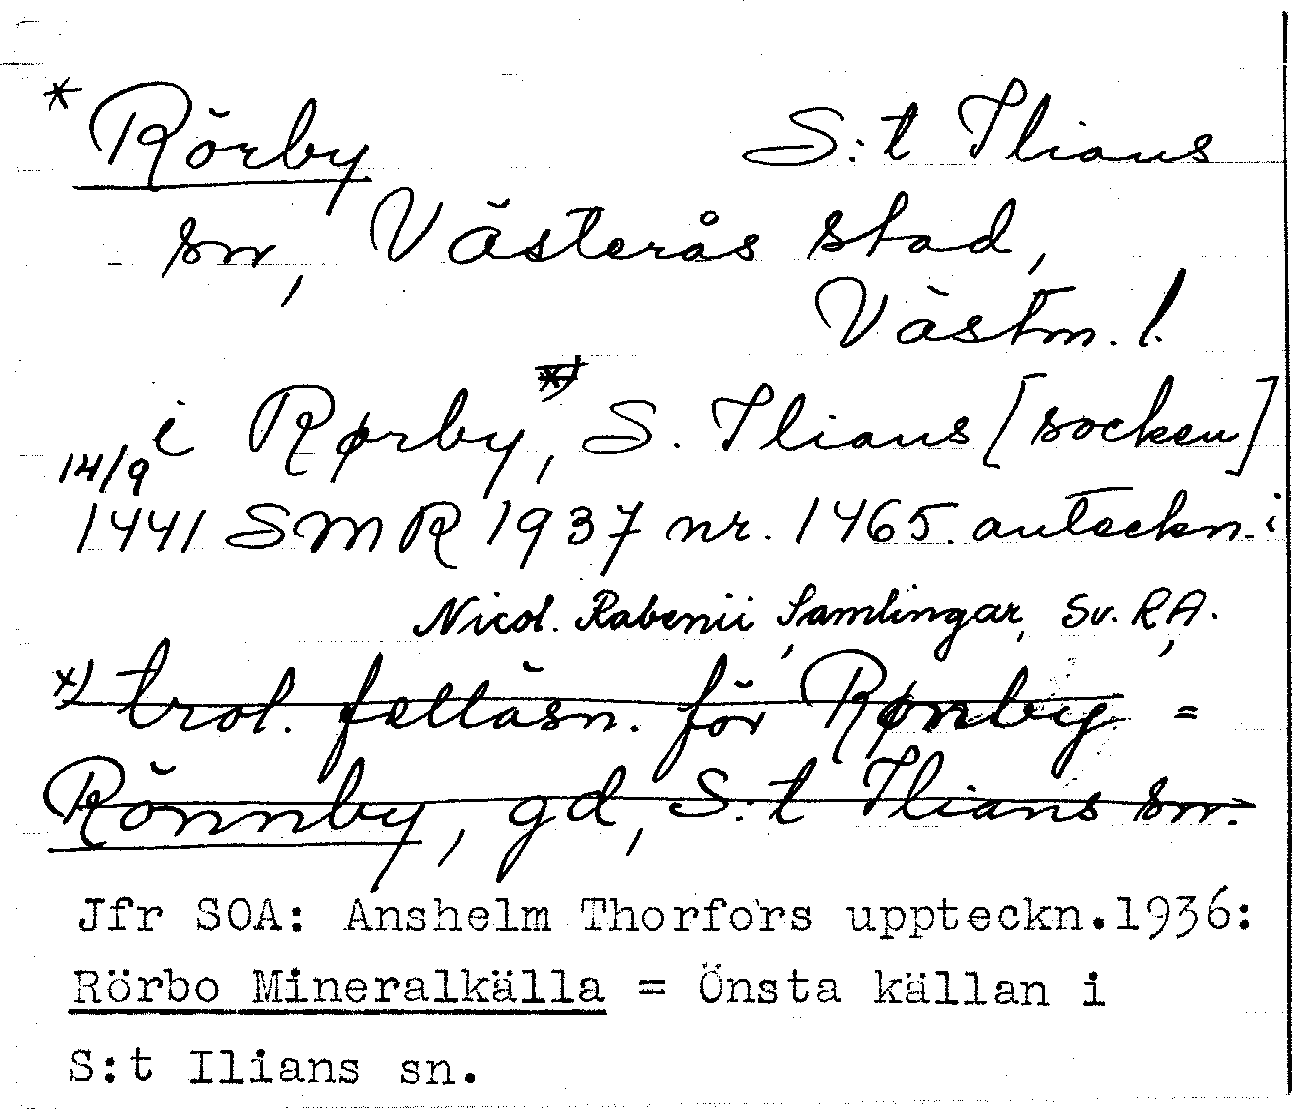 * Rörby S:t Ilians
sn, Västerås stad,
Västm. l.
i Rørby, *) S. Ilians [socken]
14/9
1441 SMR 1937 nr. 1465. anteckn. i
Nicol. Rabenii Samlingar, Sv. RA.
*) trol. felläsn. för Rønby =
Rönnby, gd, S:t Ilians sn.
Jfr SOA: Anshelm Thorfors uppteckn.1936:
Rörbo Mineralkälla = Önsta källan i
S:t Ilians sn.